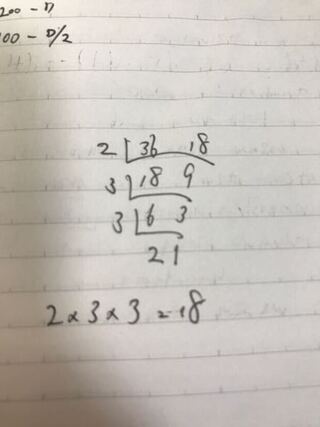 200 - D
100 - D/2
2 36 18
3 18 9
3 6 3
2 1
2 x 3 x 3 = 18